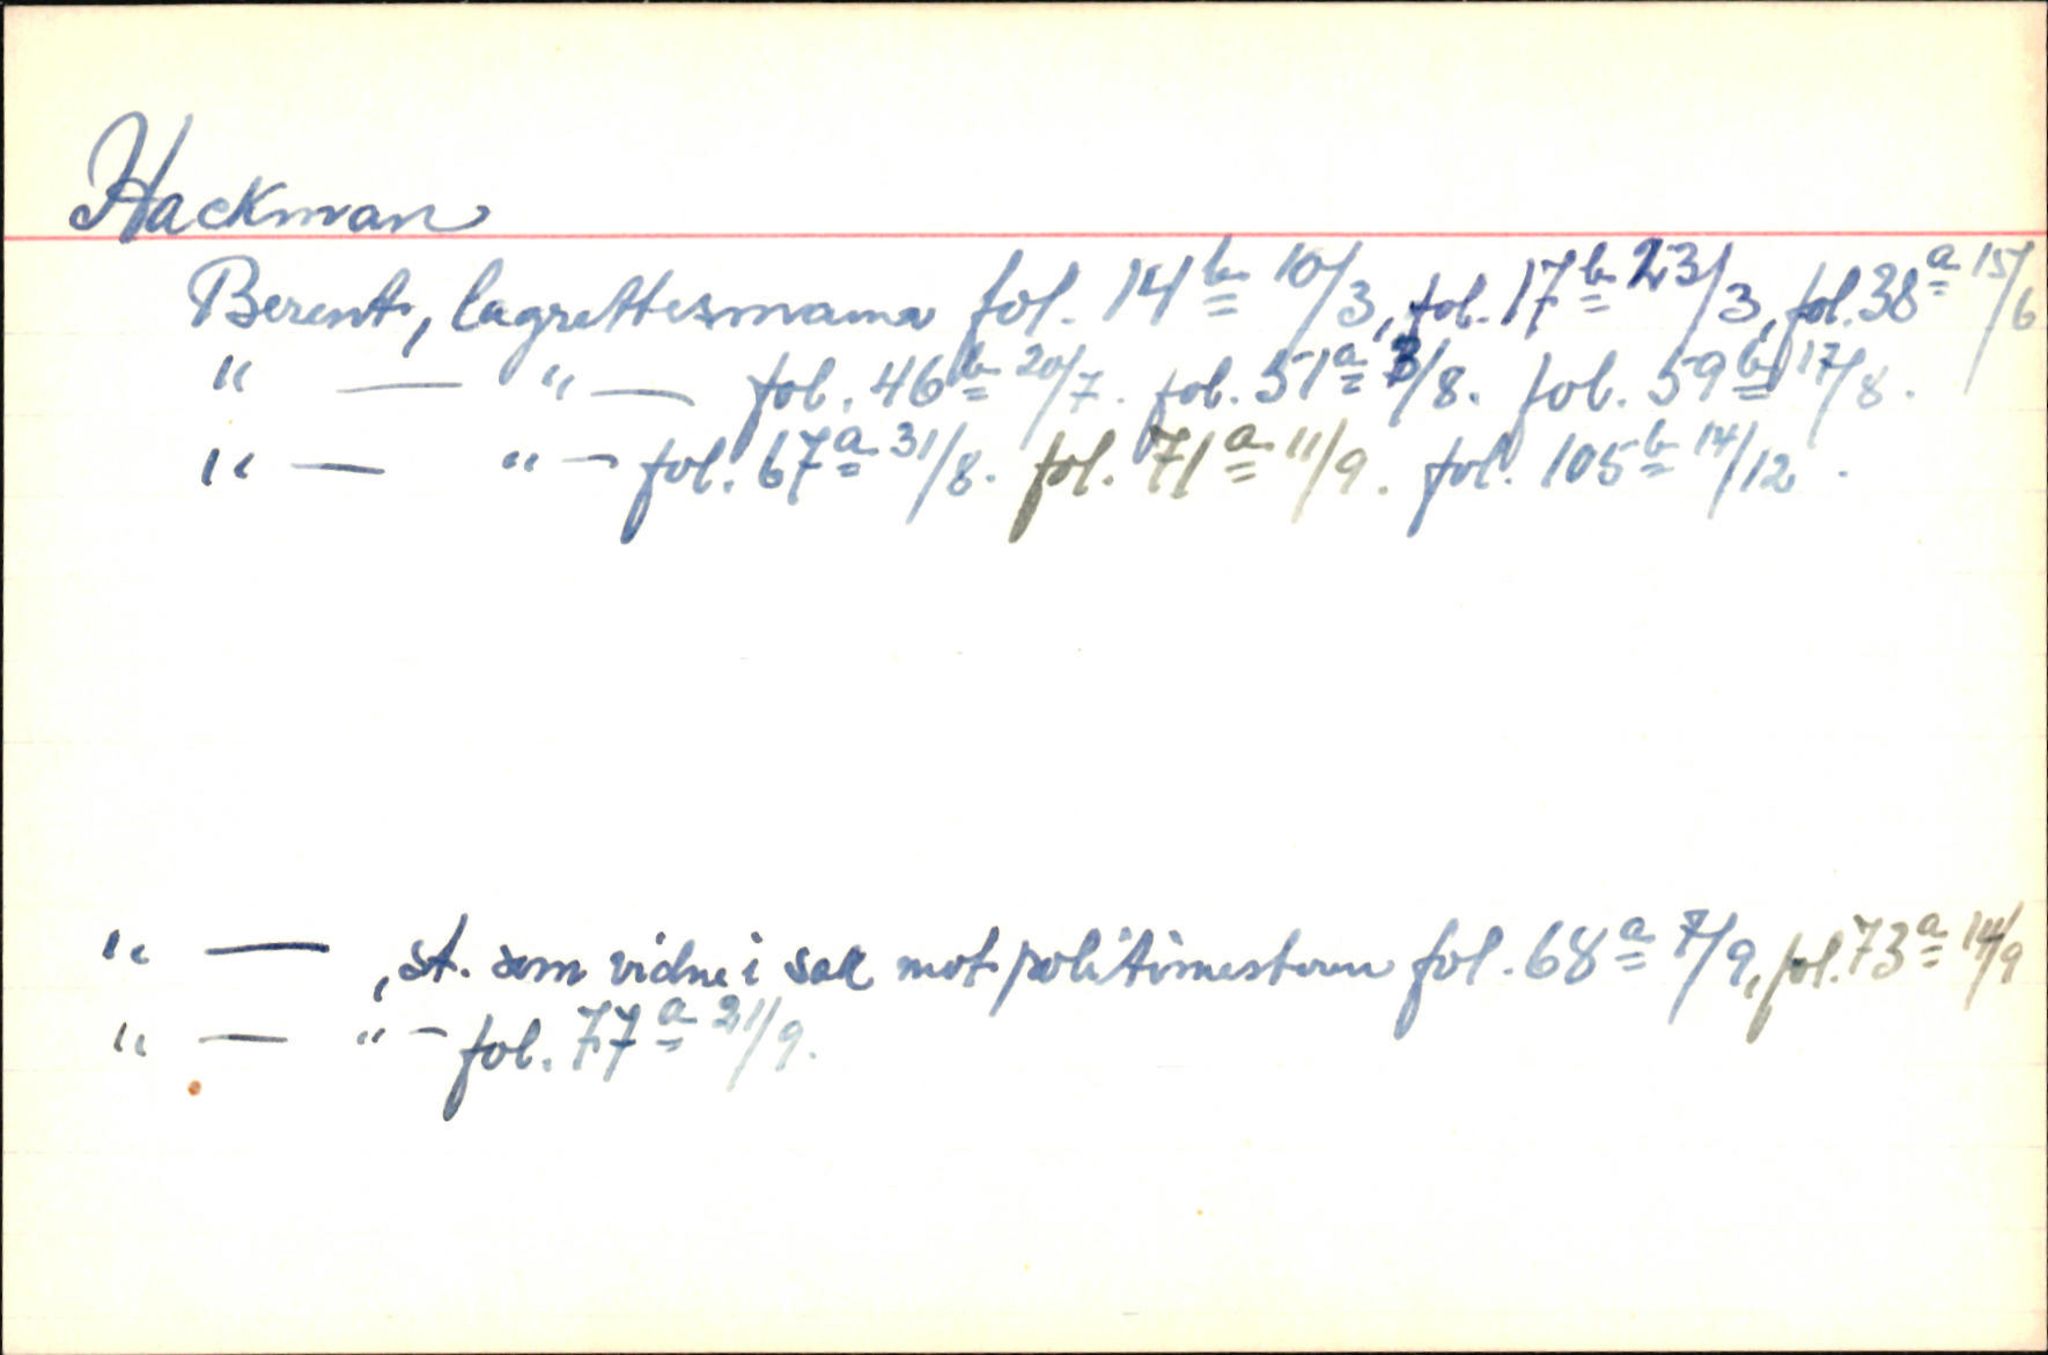 Hackman
Berent, lagrettesmann fol. 14b 10/3, fol. 17b 23/3, fol. 38a 15/6
" — " — fol. 46b 20/7. fol. 51a 3/8. fol. 59b 17/8.
" — " — fol. 67a 31/8. fol. 71a 11/9. fol. 105b 14/12.
" — , st. som vidne i sak mot politimesteren fol. 68a 7/9, fol. 73a 14/9
" — " — fol. 77a 21/9.